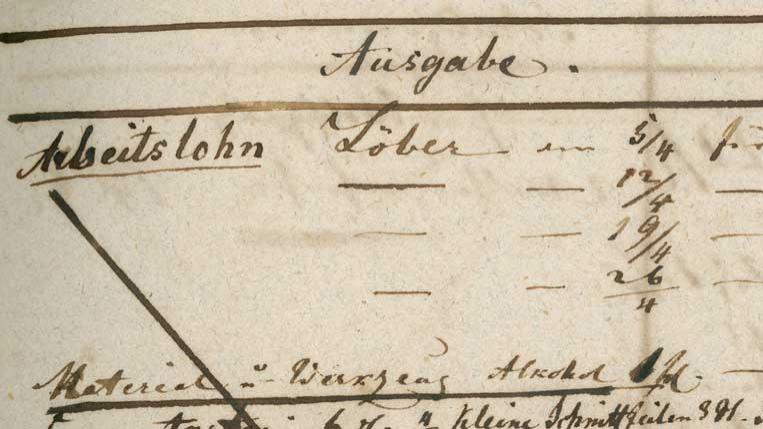 Ausgabe.
Arbeitslohn Löber — am 5/4 für
— — 12/4 —
— — 19/4 —
— — 26/4 —
Material u Werkzeug Alkohol 1 —
6 kleine Schnittfeilen 3